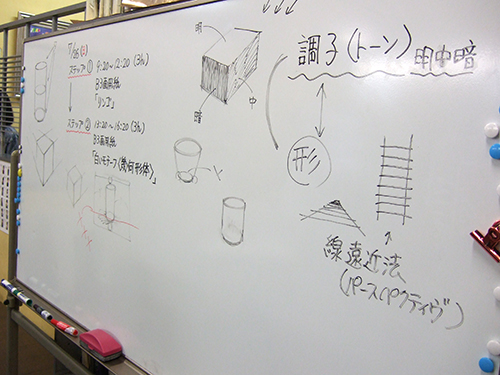 11/26(土)
ステップ① 9:20～12:20 (3h)
B3画用紙
「リンゴ」
ステップ② 13:20～16:20 (3h)
B3画用紙
「白いモチーフ(幾何形体)」
明
中
暗
調子(トーン) 明中暗
形
線遠近法
(パースペクティヴ)